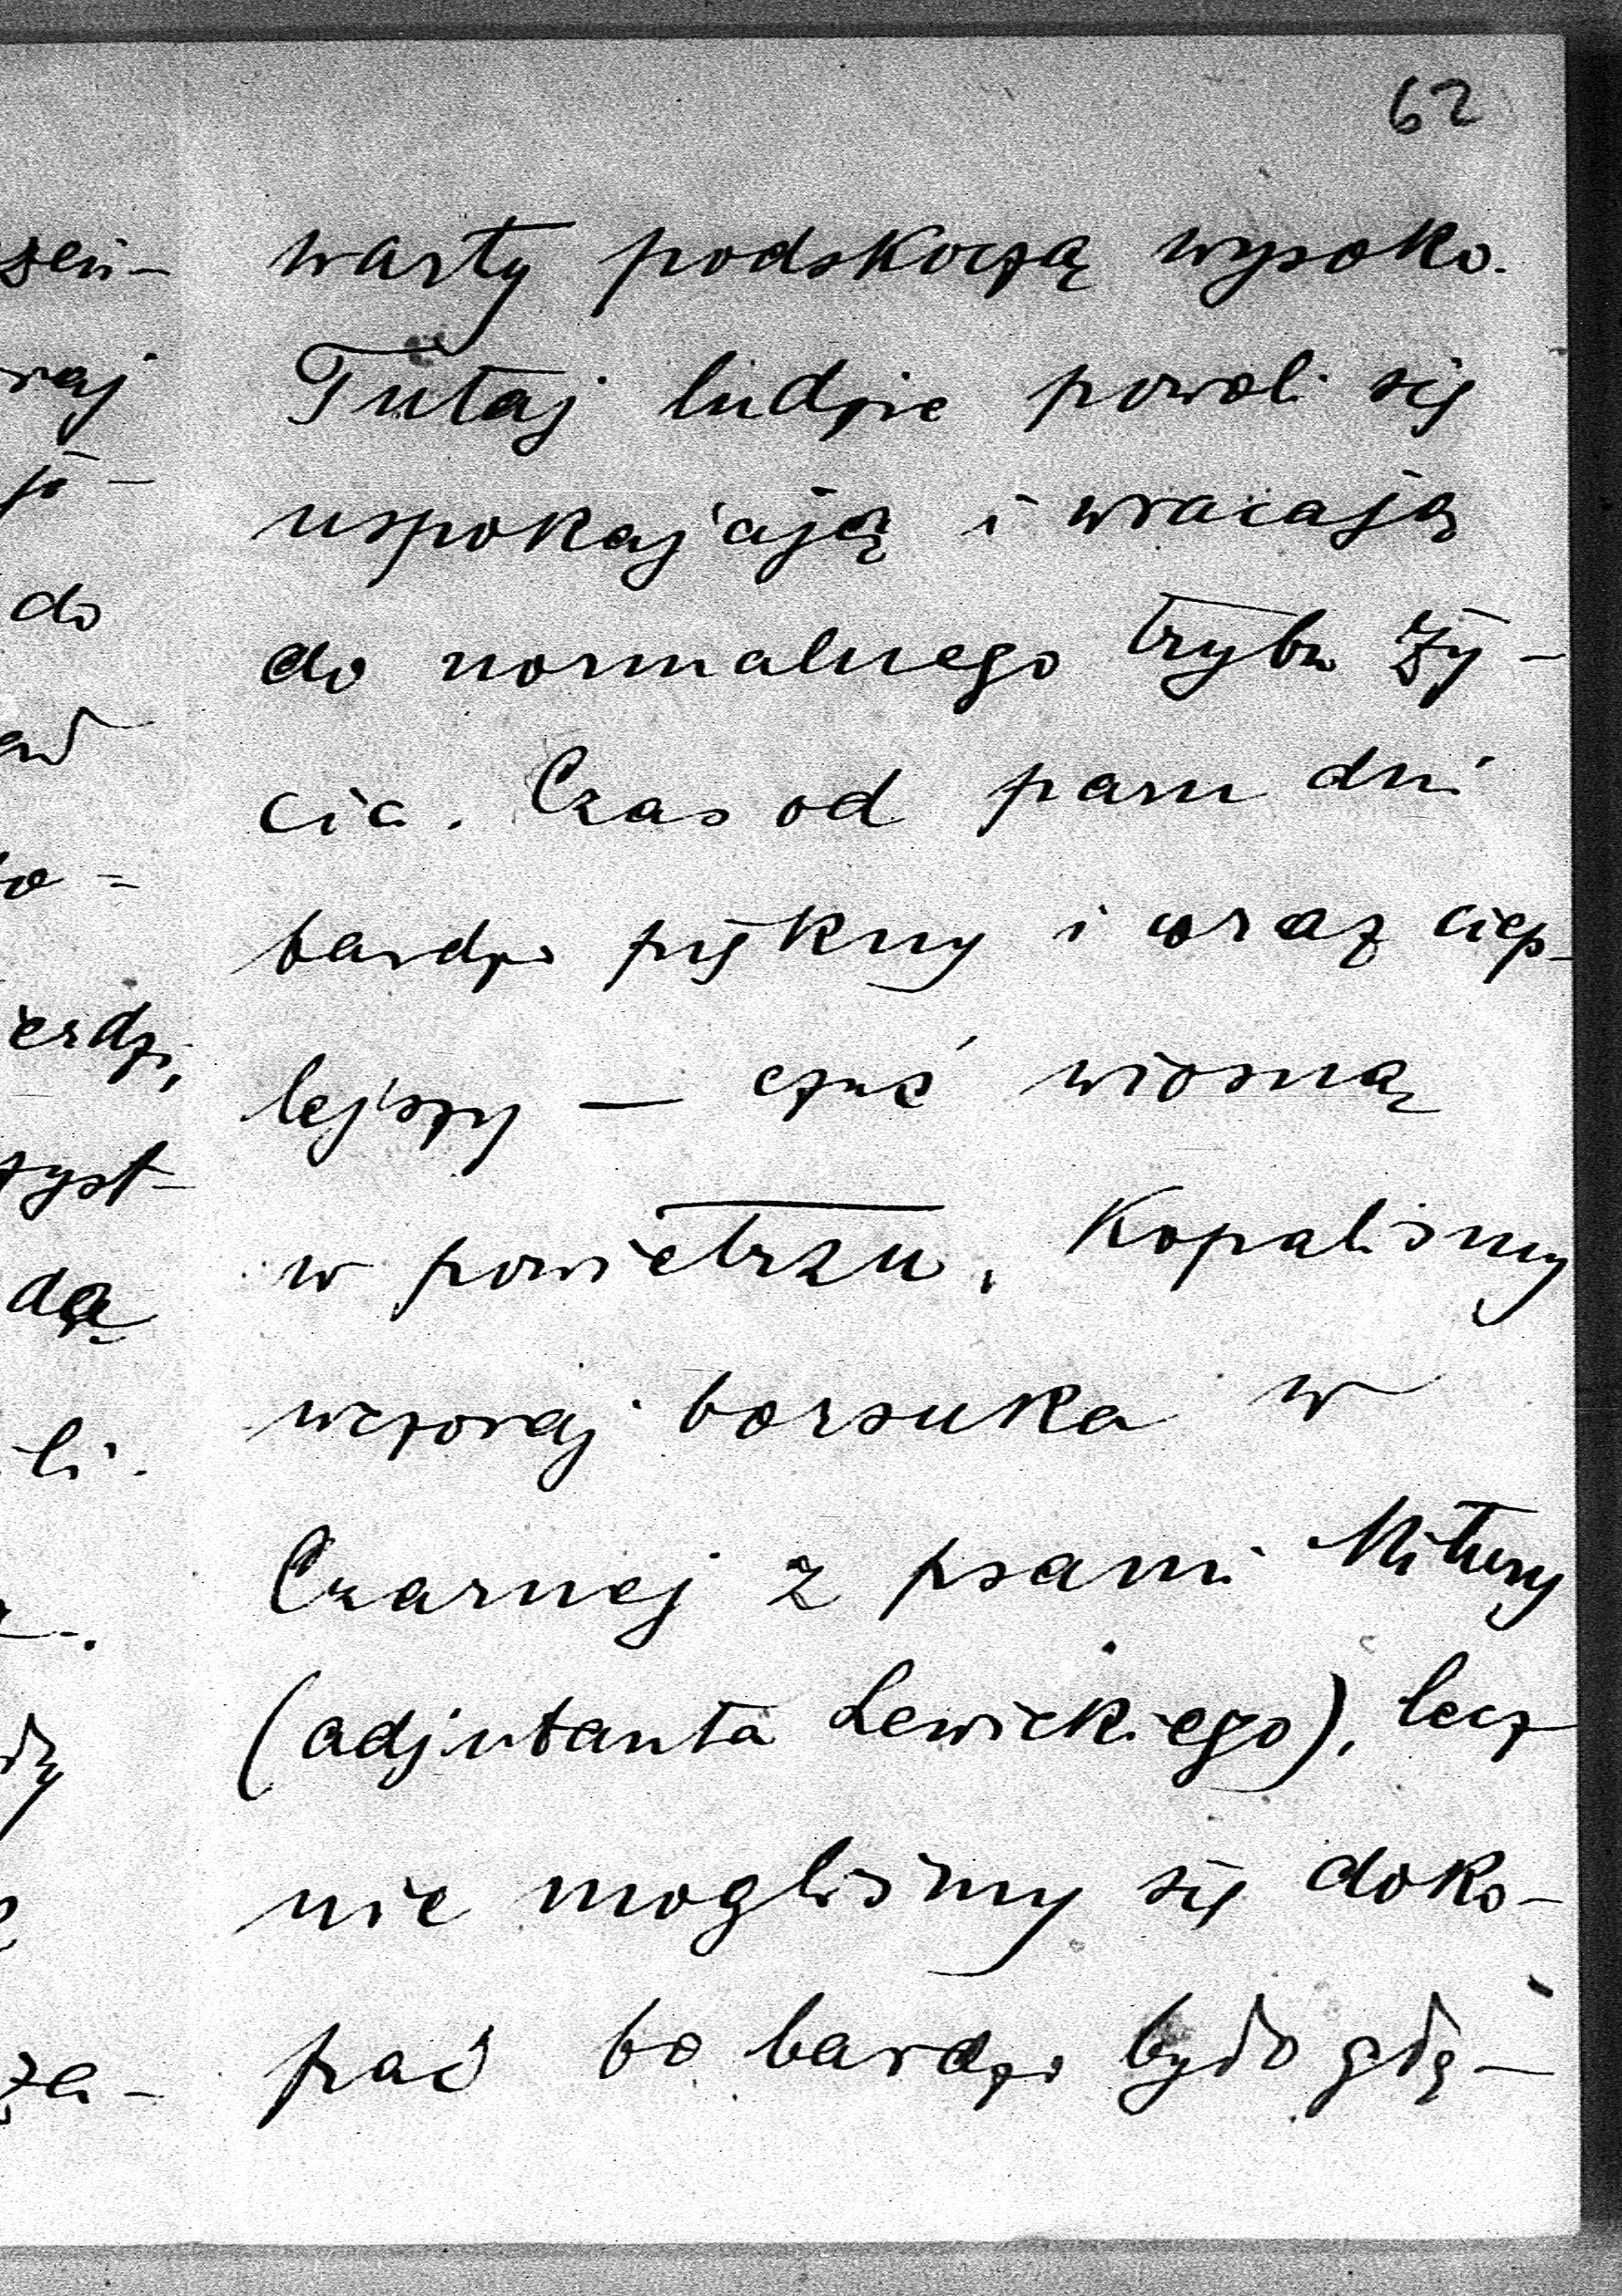 62
warty podskoczą wysoko.
Tutaj ludzie powoli się
uspokajają i wracają
do normalnego trybu ży-
cia. Czas od paru dni
bardzo piękny i coraz ciep-
lejszy — czuć wiosną
w powietrzu. Kopaliśmy
wczoraj borsuka w
Czarnej z psami Mitury
(adjutanta Lewickiego), lecz
nie mogliśmy się doko-
pać bo bardzo było głę-